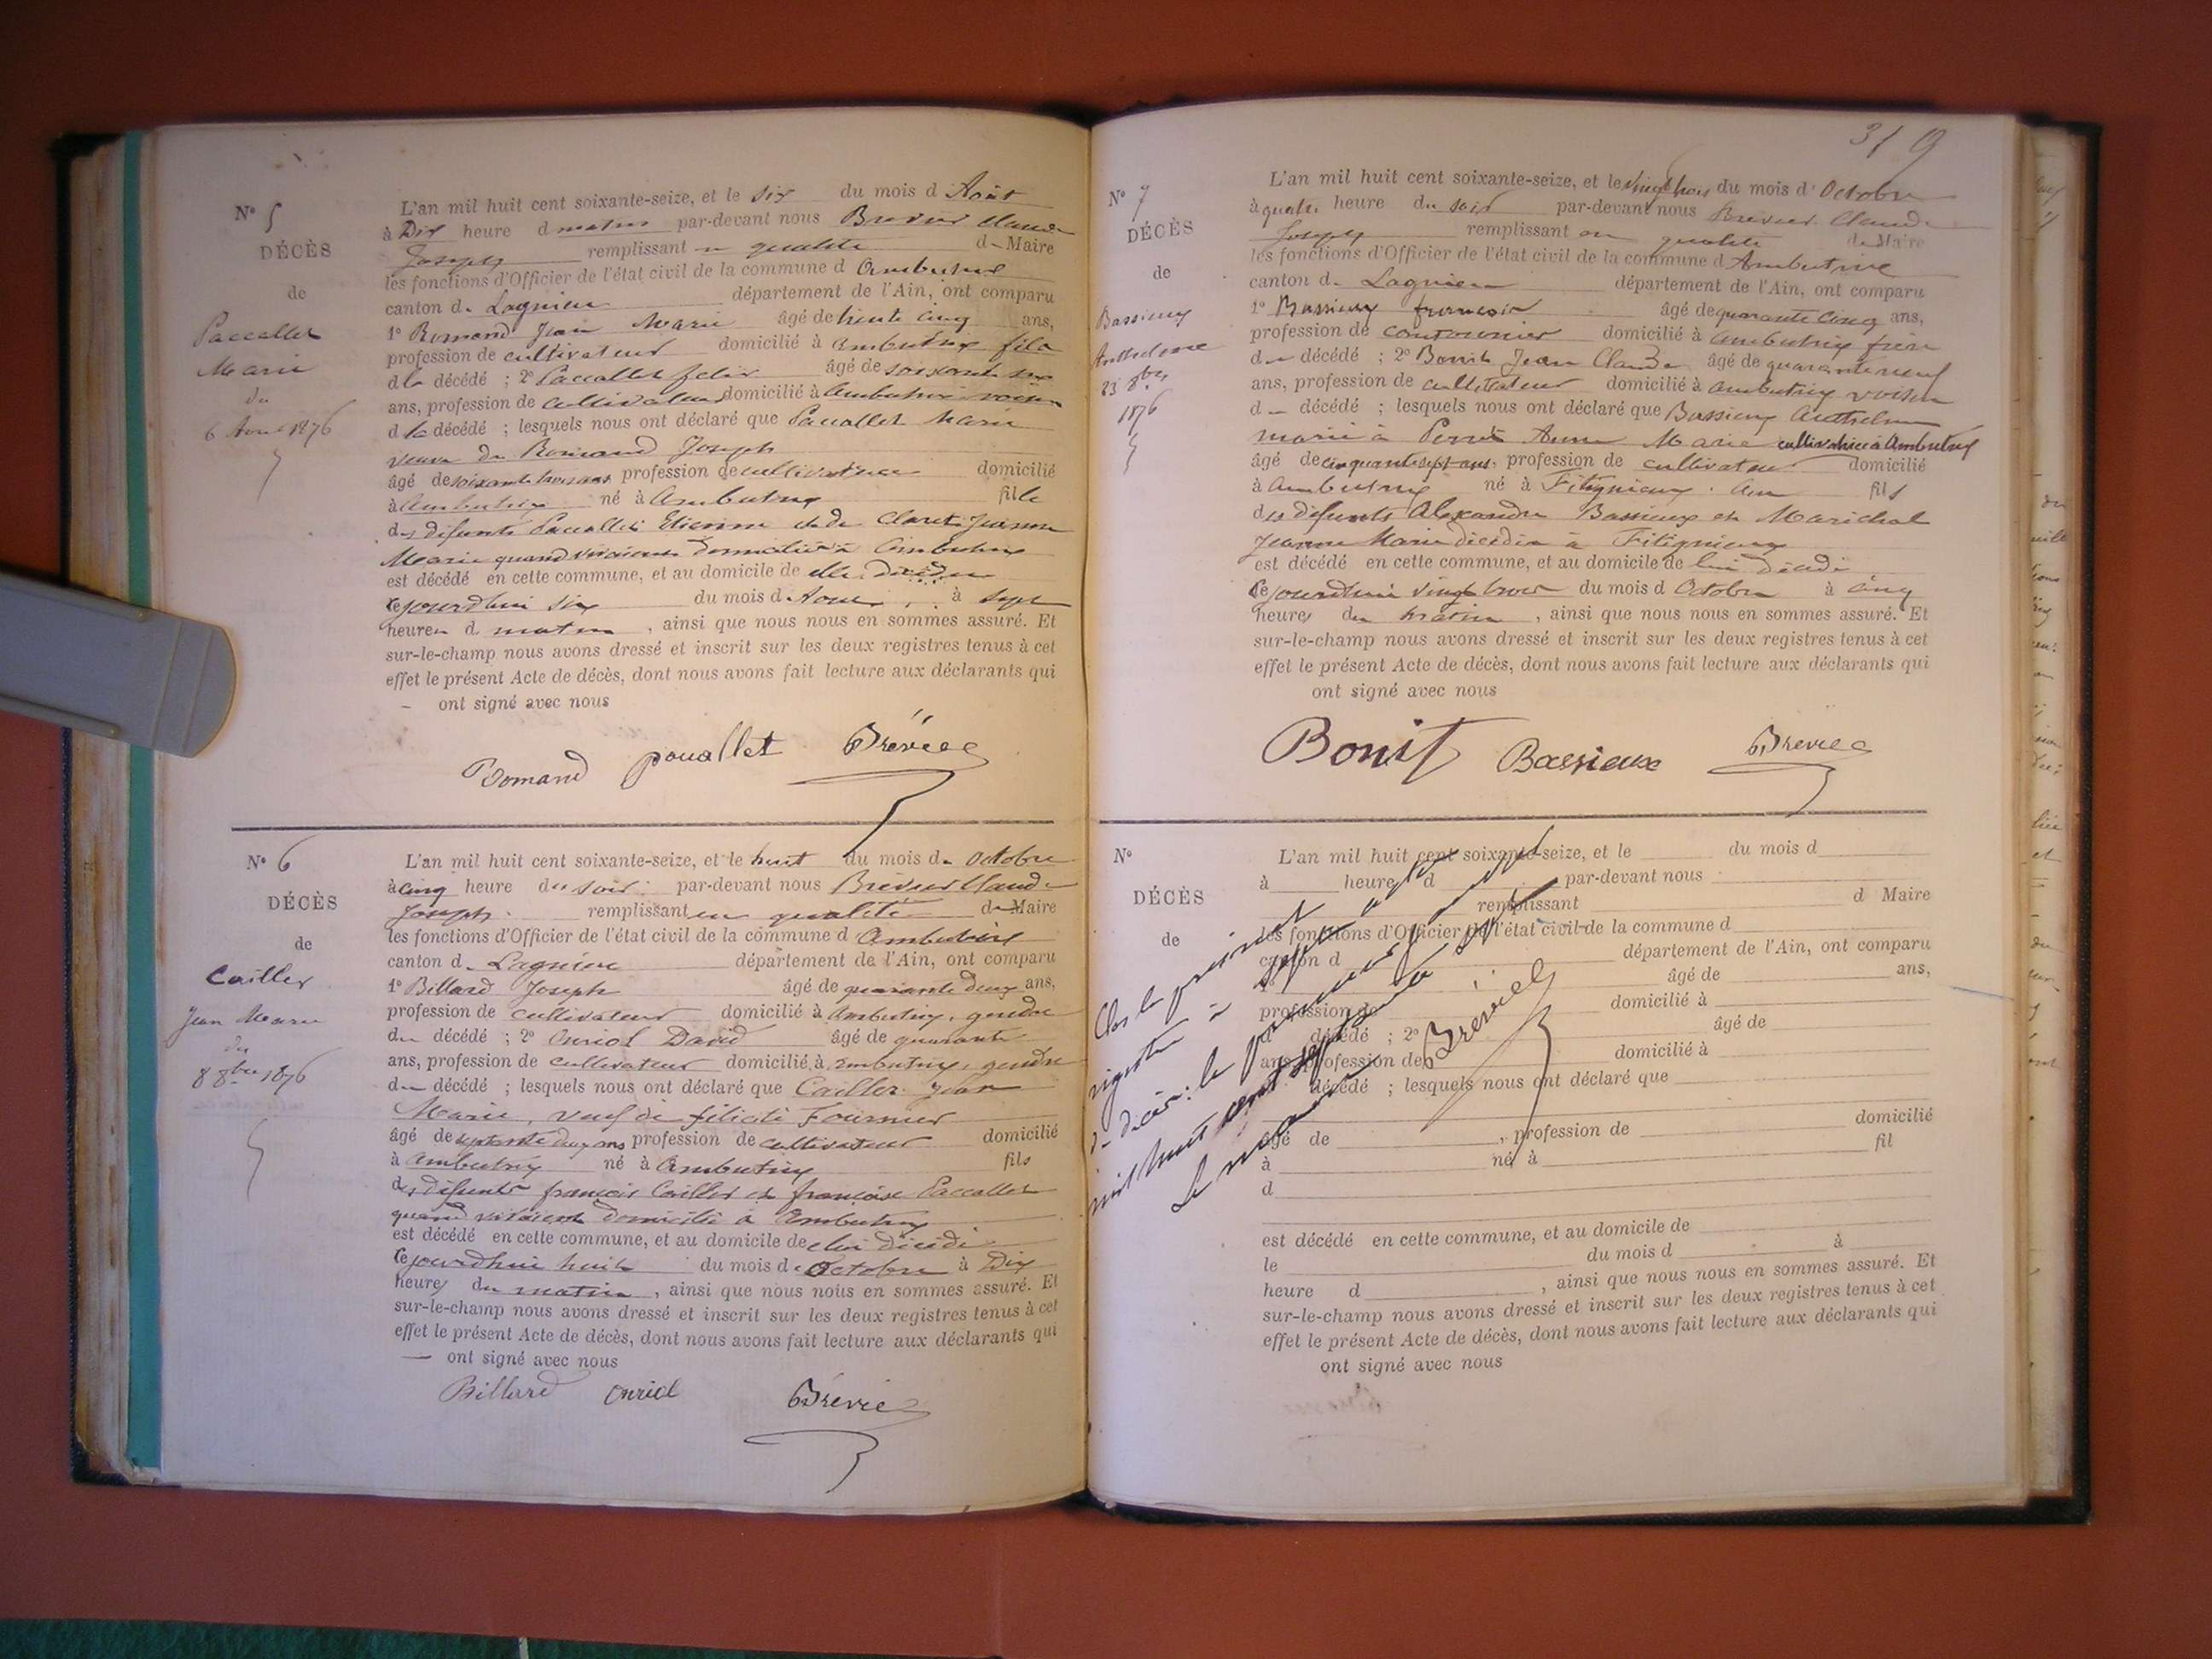 N° 5
DÉCÈS
de
Paccallet
Marie
du
6 Aout 1876
L'an mil huit cent soixante-seize, et le Six du mois d Août
à Dix heure d matin par-devant nous Brevier Claude
Joseph remplissant en qualité de Maire
les fonctions d'Officier de l'état civil de la commune d Ambutrix
canton de Lagnieu département de l'Ain, ont comparu
1° Romand Jean Marie âgé de trente cinq ans,
profession de cultivateur domicilié à Ambutrix fils
d la décédé ; 2° Paccallet felix âgé de soixante six
ans, profession de cultivateur domicilié à Ambutrix voisin
d la décédé ; lesquels nous ont déclaré que Paccallet Marie
veuve de Romand Joseph
âgé de soixante trois ans profession de cultivatrice domicilié
à Ambutrix né à Ambutrix fille
des défunts Paccallet Etienne et de Claret Jeanne
Marie quand vivaient domicilié à Ambutrix
est décédé en cette commune, et au domicile de elle décédée
cejourdhui six du mois d Aout à sept
heures d. matin , ainsi que nous nous en sommes assuré. Et
sur-le-champ nous avons dressé et inscrit sur les deux registres tenus à cet
effet le présent Acte de décès, dont nous avons fait lecture aux déclarants qui
– ont signé avec nous
Romand pacallet Brévier
N° 6
DÉCÈS
de
Cailler
Jean Marie
du
8 8bre 1876
L'an mil huit cent soixante-seize, et le huit du mois de Octobre
à cinq heure du soir par-devant nous Brevier Claude
Joseph remplissant en qualité de Maire
les fonctions d'Officier de l'état civil de la commune d Ambutrix
canton d. Lagnieu département de l'Ain, ont comparu
1° Billard Joseph âgé de quarante deux ans,
profession de cultivateur domicilié à Ambutrix, gendre
du décédé ; 2° Onriol David âgé de quarante
ans, profession de cultivateur domicilié à ambutrix, gendre
du décédé ; lesquels nous ont déclaré que Cailler Jean
Marie, veuf de félicité Fournier
âgé de septante deux ans profession de cultivateur domicilié
à ambutrix né à Ambutrix fils
des défunts françois Cailler et françoise Paccallet
quand vivaient domicilié à Ambutrix
est décédé en cette commune, et au domicile de lui décédé
cejourdhui huit du mois de Octobre à Dix
heures du matin , ainsi que nous nous en sommes assuré. Et
sur-le-champ nous avons dressé et inscrit sur les deux registres tenus à cet
effet le présent Acte de décès, dont nous avons fait lecture aux déclarants qui
— ont signé avec nous
Billard Onriol Brévier
319
N° 7
DÉCÈS
de
Bassieux
Anthelme
23 8bre
1876
L'an mil huit cent soixante-seize, et le vingt trois du mois d' Octobre
à quatre heure du soir par-devant nous Brevier Claude
Joseph remplissant en qualité de Maire
les fonctions d'Officier de l'état civil de la commune d Ambutrix
canton d. Lagnieu département de l'Ain, ont comparu
1° Bassieux françois âgé de quarante cinq ans,
profession de cantonnier domicilié à Ambutrix frère
du décédé ; 2° Bonit Jean Claude âgé de quarante neuf
ans, profession de cultivateur domicilié à Ambutrix voisin
d – décédé ; lesquels nous ont déclaré que Bassieux Anthelme
marié à Perret Anne Marie cultivatrice à Ambutrix
âgé de cinquante sept ans, profession de cultivateur domicilié
à Ambutrix né à Fitignieux Ain fils
des défunts Alexandre Bassieux et Marichal
Jeanne Marie décédés à Fitignieux
est décédé en cette commune, et au domicile de lui décédé
cejourdhui vingt trois du mois d Octobre à cinq
heures du matin , ainsi que nous nous en sommes assuré. Et
sur-le-champ nous avons dressé et inscrit sur les deux registres tenus à cet
effet le présent Acte de décès, dont nous avons fait lecture aux déclarants qui
ont signé avec nous
Bonit Bassieux Brevier
N°
DÉCÈS
de
L'an mil huit cent soixante-seize, et le du mois d
à heure d par-devant nous
remplissant d Maire
les fonctions d'Officier de l'état civil de la commune d
canton d département de l'Ain, ont comparu
1° âgé de ans,
profession de domicilié à
d décédé ; 2° âgé de
ans, profession de domicilié à
d décédé ; lesquels nous ont déclaré que
âgé de , profession de domicilié
à né à fil
d
est décédé en cette commune, et au domicile de
le du mois d à
heure d , ainsi que nous nous en sommes assuré. Et
sur-le-champ nous avons dressé et inscrit sur les deux registres tenus à cet
effet le présent Acte de décès, dont nous avons fait lecture aux déclarants qui
ont signé avec nous
Clos le présent
registre à sept actes
de décès le premier janvier
mil huit cent septante sept
Le maire Brevier